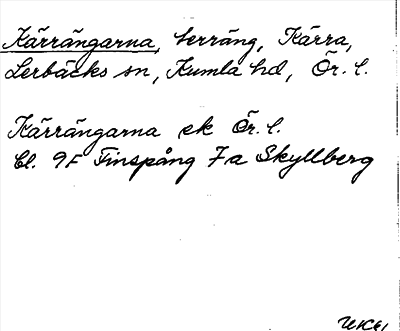 Kärrängarna, terräng, Kärra,
Lerbäcks sn, Kumla hd, Ör. l.
Kärrängarna ek Ör. l.
bl. 9F Finspång 7a Skyllberg